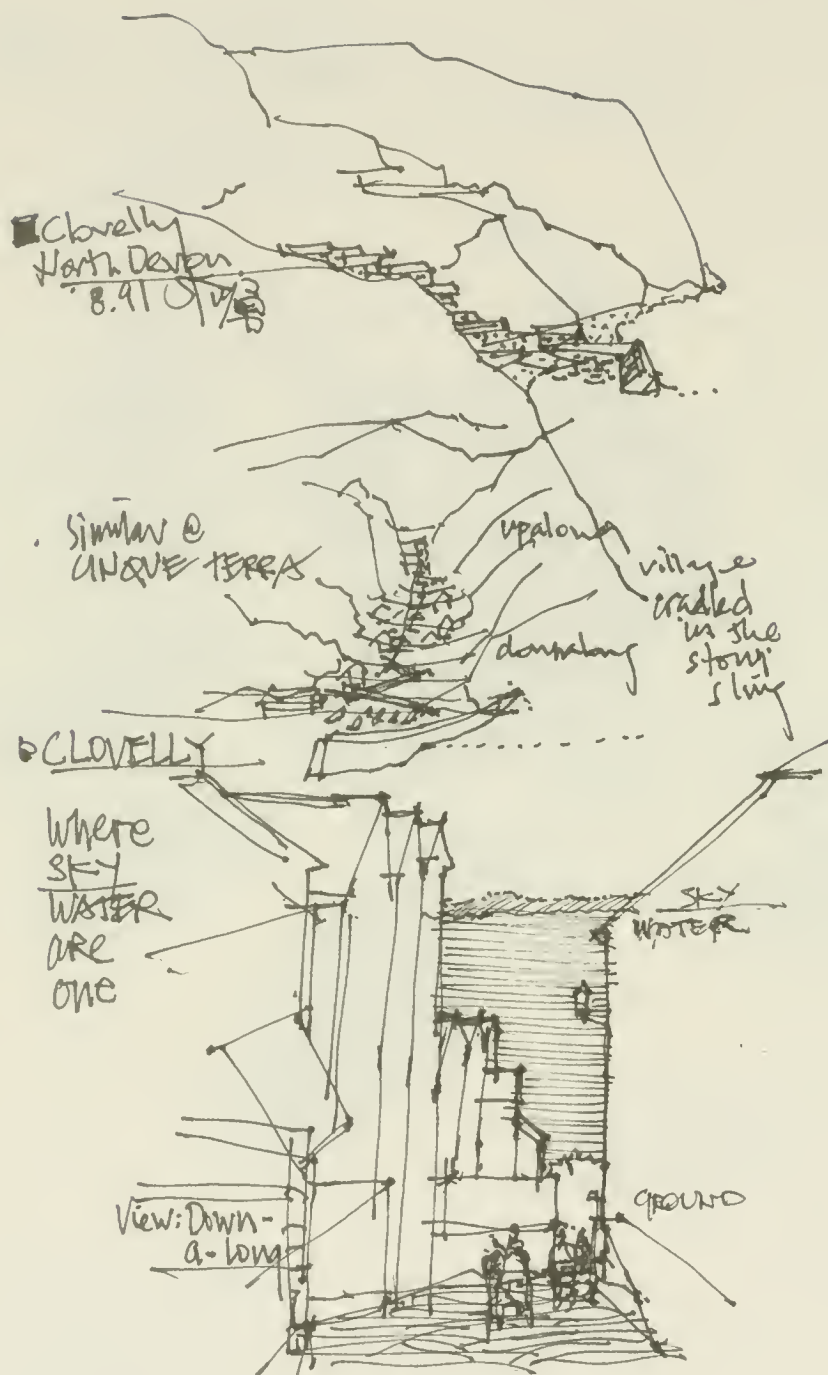 Clovelly
North Devon
8.91
Similar @
UNQUE TERRA
upalong
village
cradled
in the
stony
sling
downalong
CLOVELLY
Where
SKY
WATER
are
one
SKY
WATER
GROUND
View: Down-
a-long